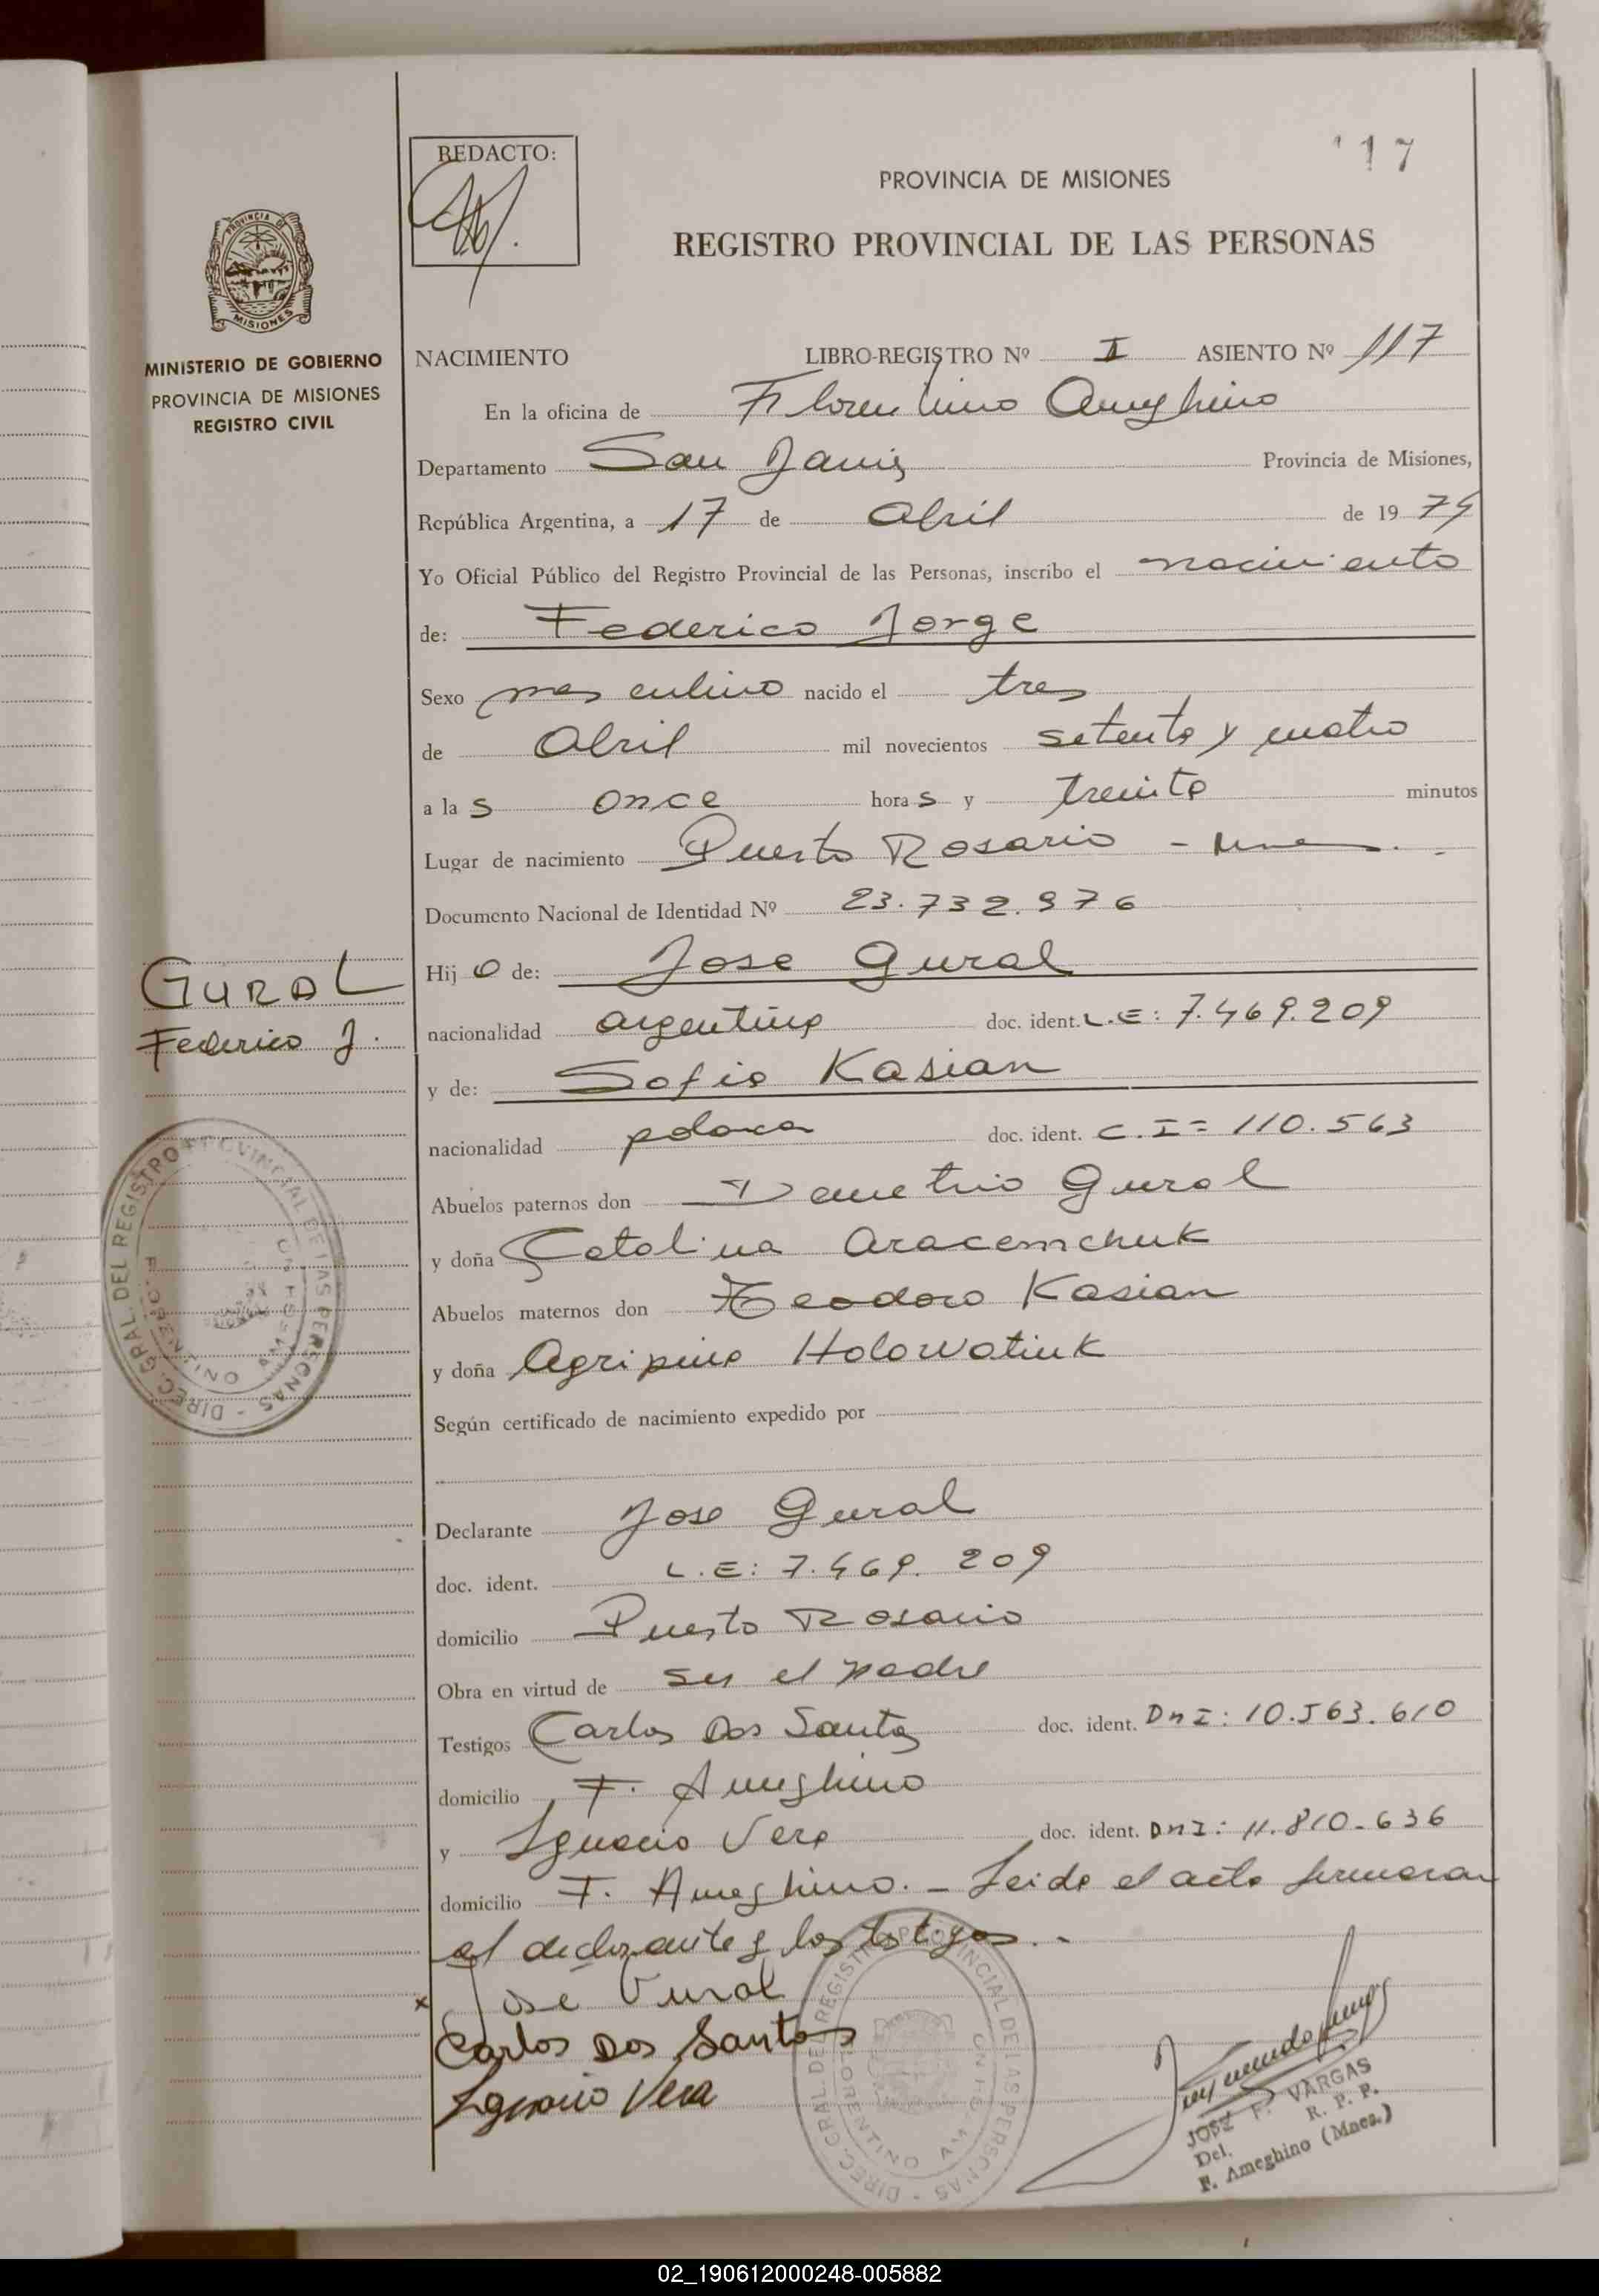 117
REDACTO:
PROVINCIA DE MISIONES
REGISTRO PROVINCIAL DE LAS PERSONAS
PROVINCIA DE
MISIONES
MINISTERIO DE GOBIERNO
PROVINCIA DE MISIONES
REGISTRO CIVIL
NACIMIENTO LIBRO-REGISTRO Nº I ASIENTO Nº 117
En la oficina de Florentino Ameghino
Departamento San Javier Provincia de Misiones,
República Argentina, a 17 de Abril de 1974
Yo Oficial Público del Registro Provincial de las Personas, inscribo el nacimiento
de: Federico Jorge
Sexo masculino nacido el tres
de Abril mil novecientos setenta y cuatro
a las once horas y treinta minutos
Lugar de nacimiento Puerto Rosario - Mnes.
Documento Nacional de Identidad Nº 23.732.976
Hijo de: Jose Gural
nacionalidad argentina doc. ident. L.E: 7.469.209
y de: Sofia Kasian
nacionalidad polaca doc. ident. C.I= 110.563
Abuelos paternos don Demetrio Gural
y doña Catalina Aracemchuk
Abuelos maternos don Teodoro Kasian
y doña Agripina Holowatiuk
Según certificado de nacimiento expedido por
Declarante Jose Gural
doc. ident. L.E: 7.469.209
domicilio Puerto Rosario
Obra en virtud de ser el padre
Testigos Carlos Dos Santos doc. ident. DNI: 10.563.610
domicilio F. Ameghino
y Ignacio Vera doc. ident. DNI: 11.810.636
domicilio F. Ameghino. - Leida el acta firmaran
el declarante y los testigos. -
x José Gural
Carlos Dos Santos
Ignacio Vera
GURAL
Federico J.
DIREC. GRAL. DEL REGISTRO PROVINCIAL DE LAS PERSONAS
FLORENTINO AMEGHINO
DIREC. GRAL. DEL REGISTRO PROVINCIAL DE LAS PERSONAS
FLORENTINO AMEGHINO
JOSE F. VARGAS
Del. R. P. P.
F. Ameghino (Mnes.)
02_190612000248-005882